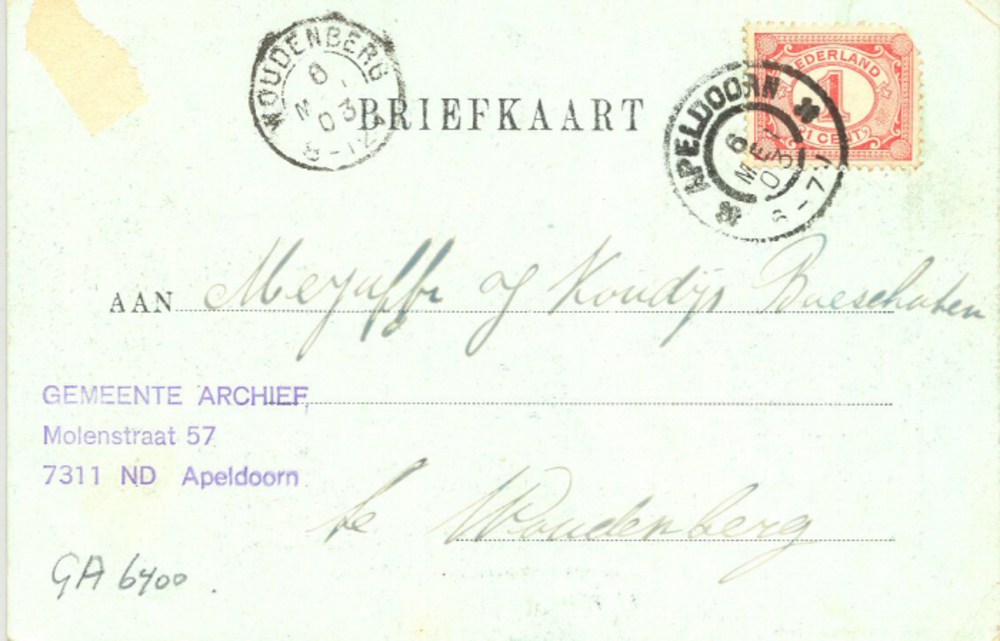 WOUDENBERG
6
M
03
8-12
BRIEFKAART
NEDERLAND
1
CENT
APELDOORN
6
MEI
03
6-7
AAN Mejuffr
Koudijs Boeschoten
GEMEENTE ARCHIEF,
Molenstraat 57
7311 ND Apeldoorn
te Woudenberg
GA 6400.